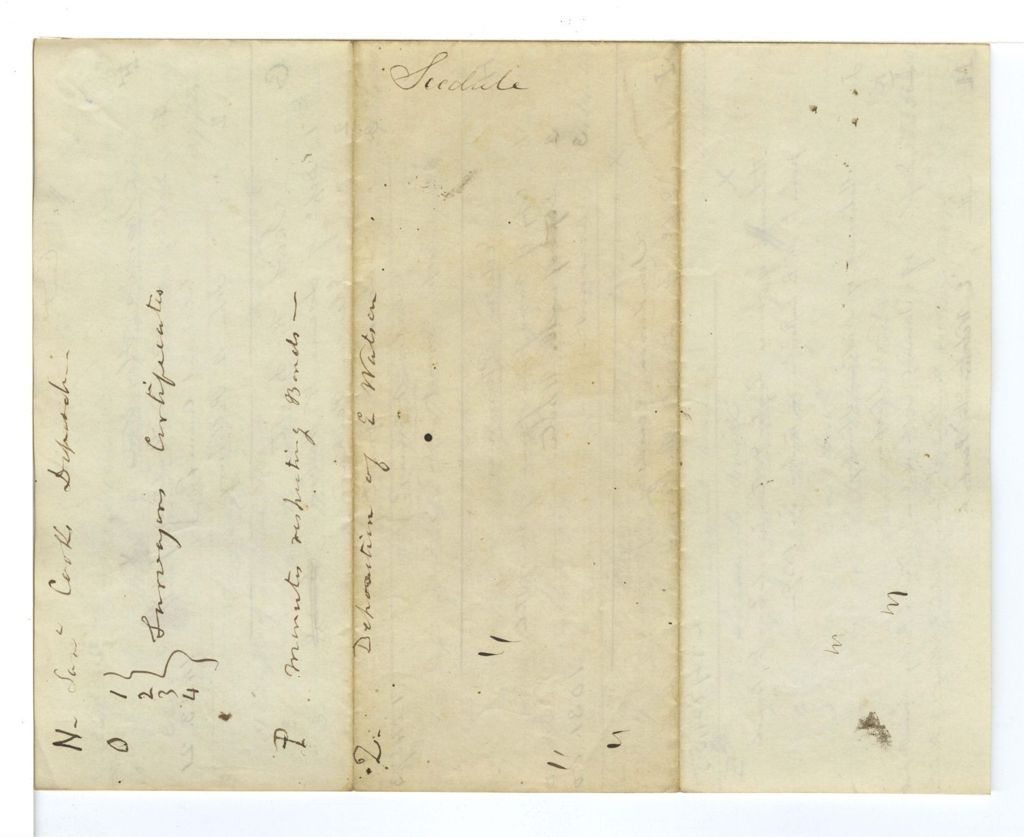 Scedule
N- Sam^l Cooks Deposit-
O 1 }
2 } Surveyors Certificates
3 }
4 }
P Minutes respecting Bonds—
Q. Deposition of E Watson